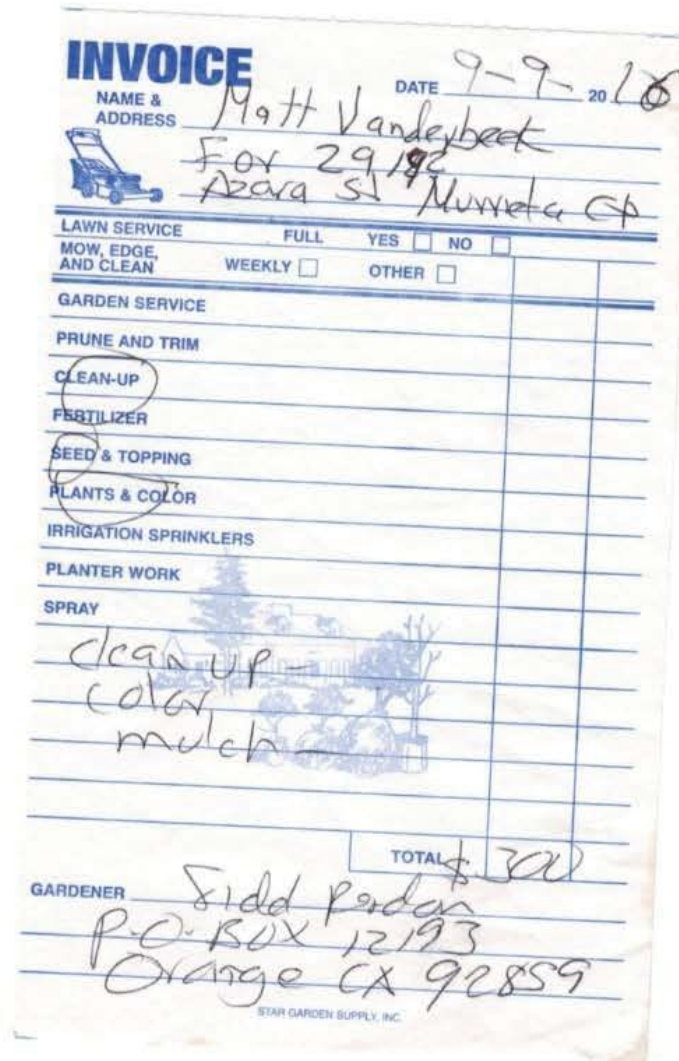 INVOICE
DATE 9-9- 20 16
NAME & ADDRESS Matt Vanderbeek
For 29182
Azara St Murrieta CA
LAWN SERVICE FULL YES NO
MOW, EDGE, AND CLEAN WEEKLY OTHER
GARDEN SERVICE
PRUNE AND TRIM
CLEAN-UP
FERTILIZER
SEED & TOPPING
PLANTS & COLOR
IRRIGATION SPRINKLERS
PLANTER WORK
SPRAY
clean up -
color
mulch -
TOTAL $ 300
GARDENER
P.O. BOX 12193
Orange CA 92859
STAR GARDEN SUPPLY, INC.